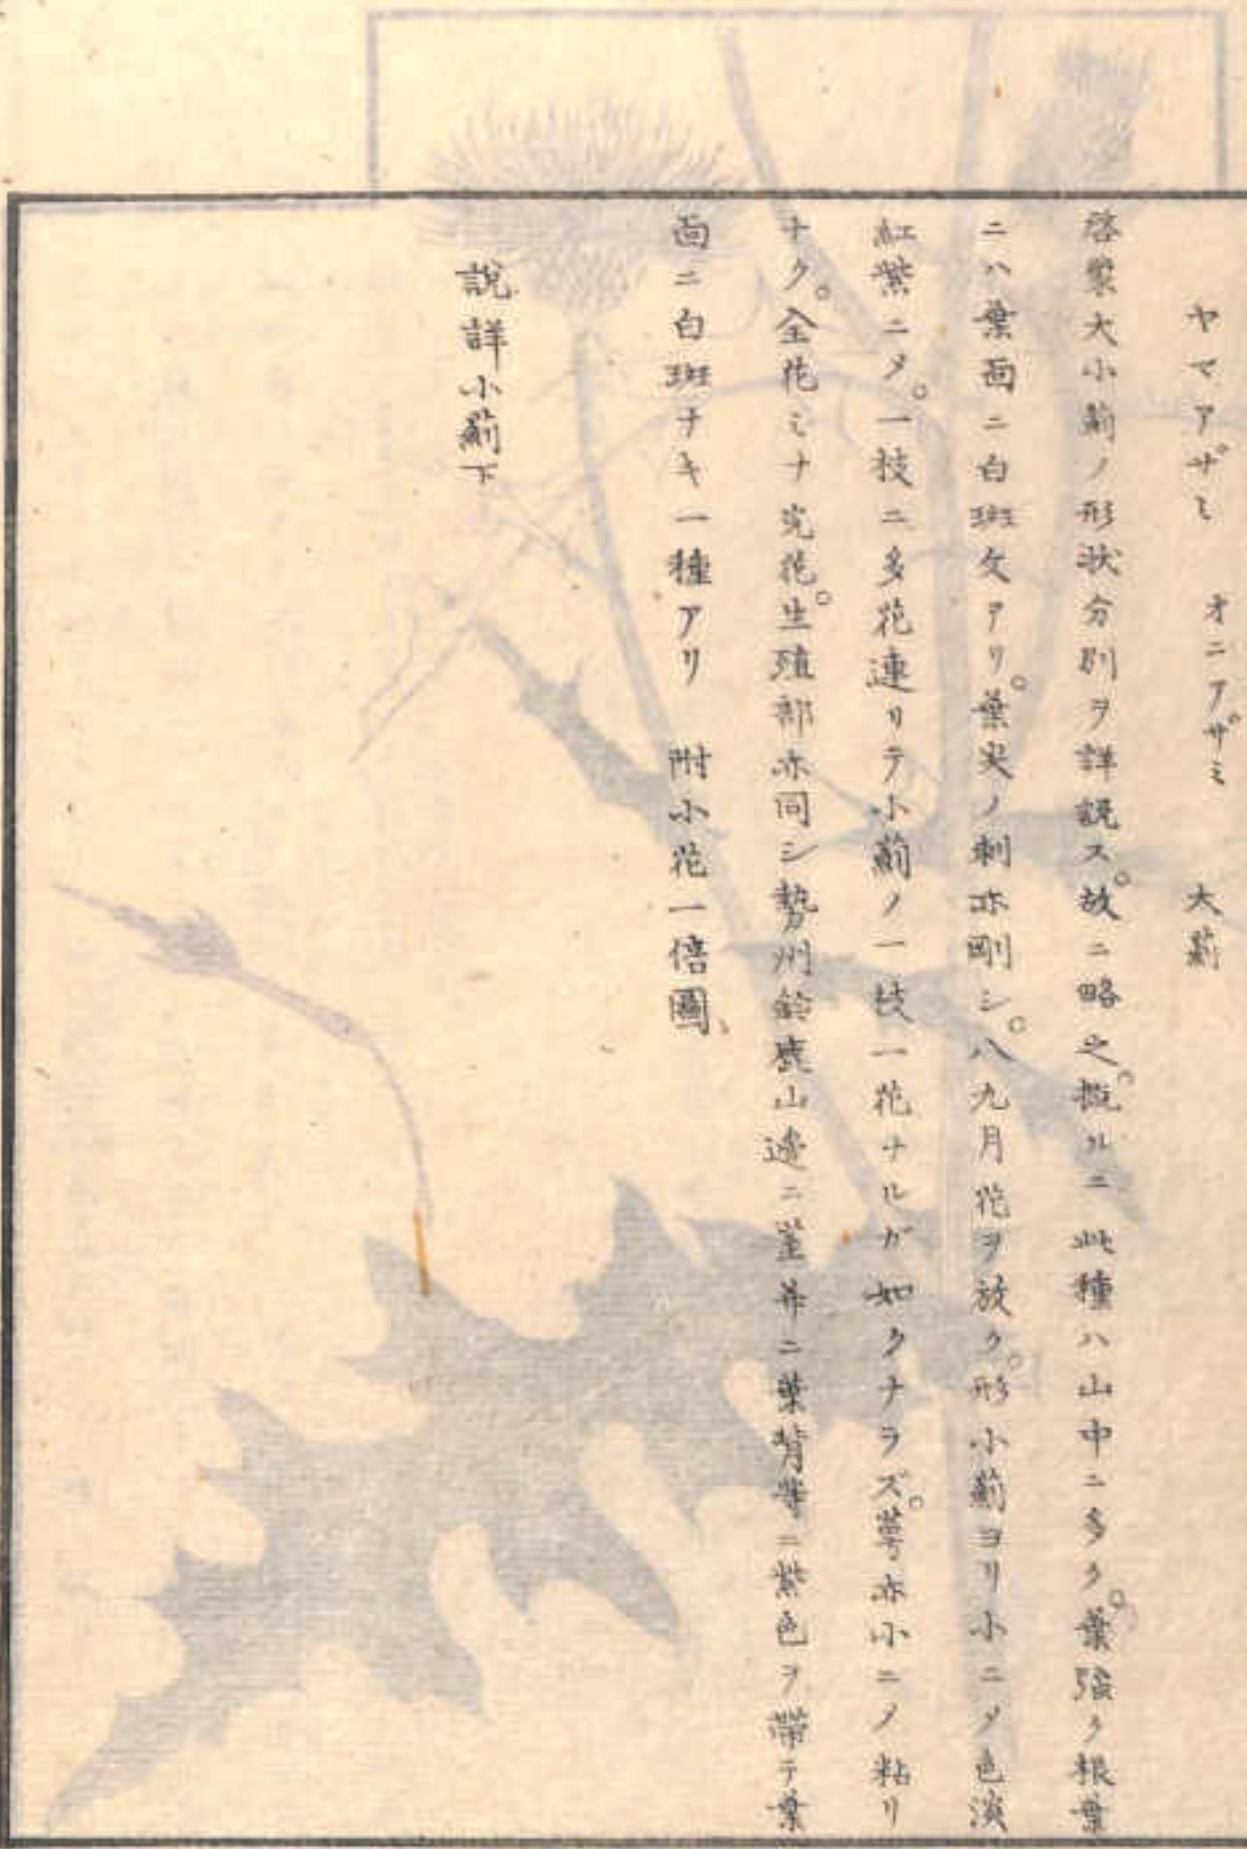 ヤマアザミ　オニアザミ　大薊
啓蒙大小薊ノ形状分別ヲ詳説ス。故ニ略之。概ルニ此種ハ山中ニ多ク。葉強ク根葉
ニハ葉面ニ白斑文アリ。葉尖ノ刺亦剛シ。八九月花ヲ放ク。形小薊ヨリ小ニ〆色淡
紅紫ニ〆。一枝ニ多花連リテ小薊ノ一枝一花ナルガ如クナラズ。萼亦小ニ〆粘リ
ナク。全花ミナ完花。生殖部亦同シ勢州鈴鹿山邊ニ莖并ニ葉背等ニ紫色ヲ帯テ葉
面ニ白斑ナキ一種アリ　附小花一倍圖、
說詳小薊下